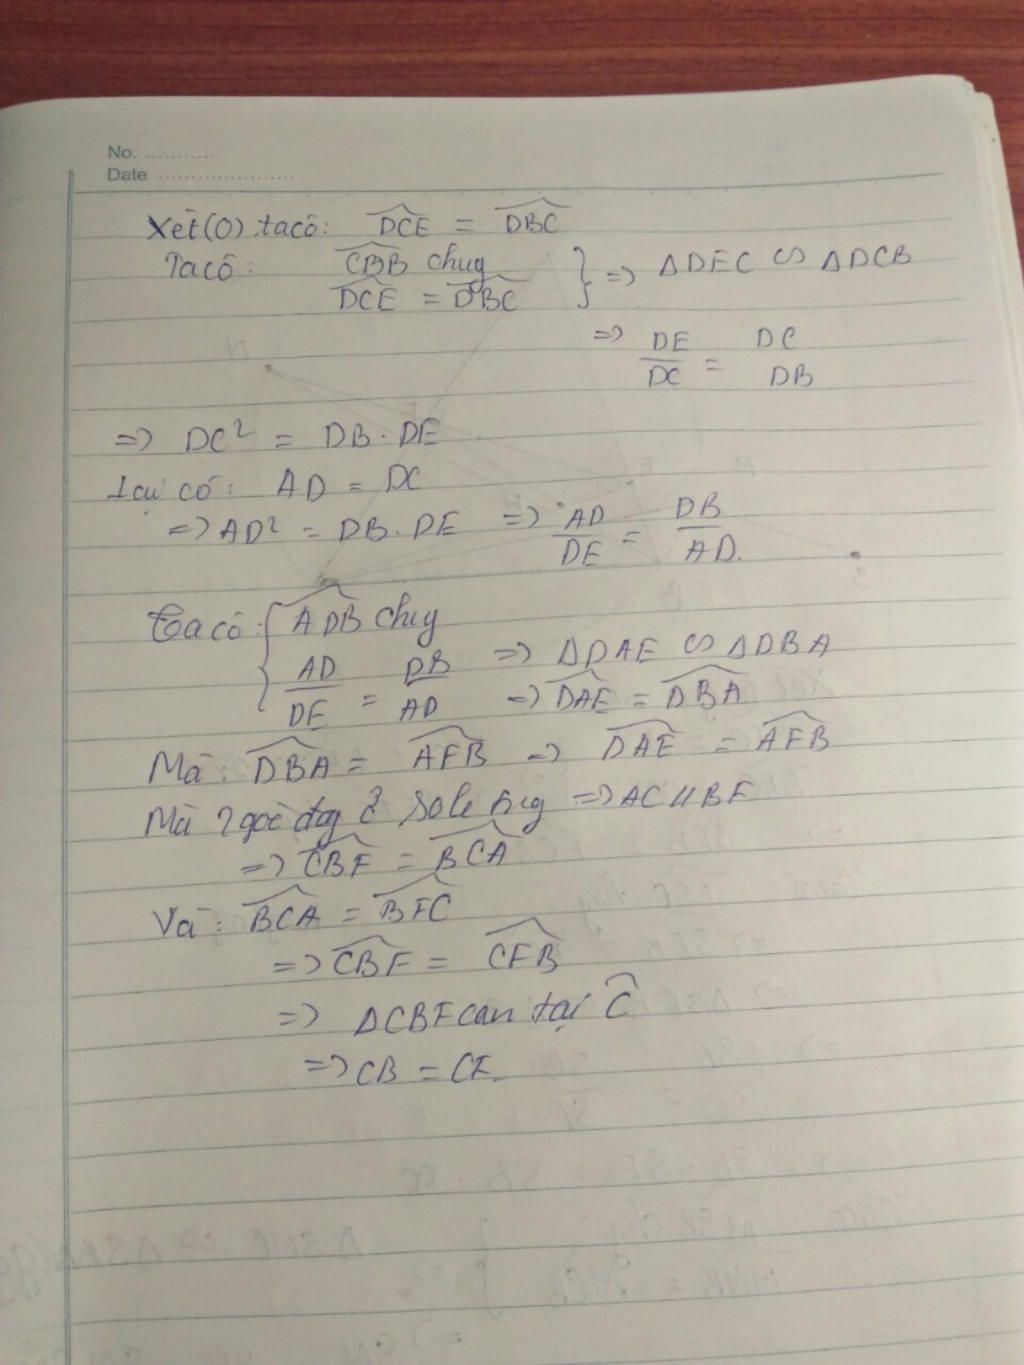 No. ...........
Date ......................
Xét (O) ta có: \widehat{DCE} = \widehat{DBC}
Ta có: \widehat{CDB} chung
\widehat{DCE} = \widehat{DBC} } => ΔDEC ∽ ΔDCB
=> DE/DC = DC/DB
=> DC² = DB . DE
Lại có: AD = DC
=> AD² = DB . DE => AD/DE = DB/AD.
Ta có: { \widehat{ADB} chug
AD/DE = DB/AD => ΔDAE ∽ ΔDBA
=> \widehat{DAE} = \widehat{DBA}
Mà: \widehat{DBA} = \widehat{AFB} => \widehat{DAE} = \widehat{AFB}
Mà 2 góc đag ở sole trg => AC // BF
=> \widehat{CBF} = \widehat{BCA}
Và: \widehat{BCA} = \widehat{BFC}
=> \widehat{CBF} = \widehat{CFB}
=> ΔCBF can tại \widehat{C}
=> CB = CF.